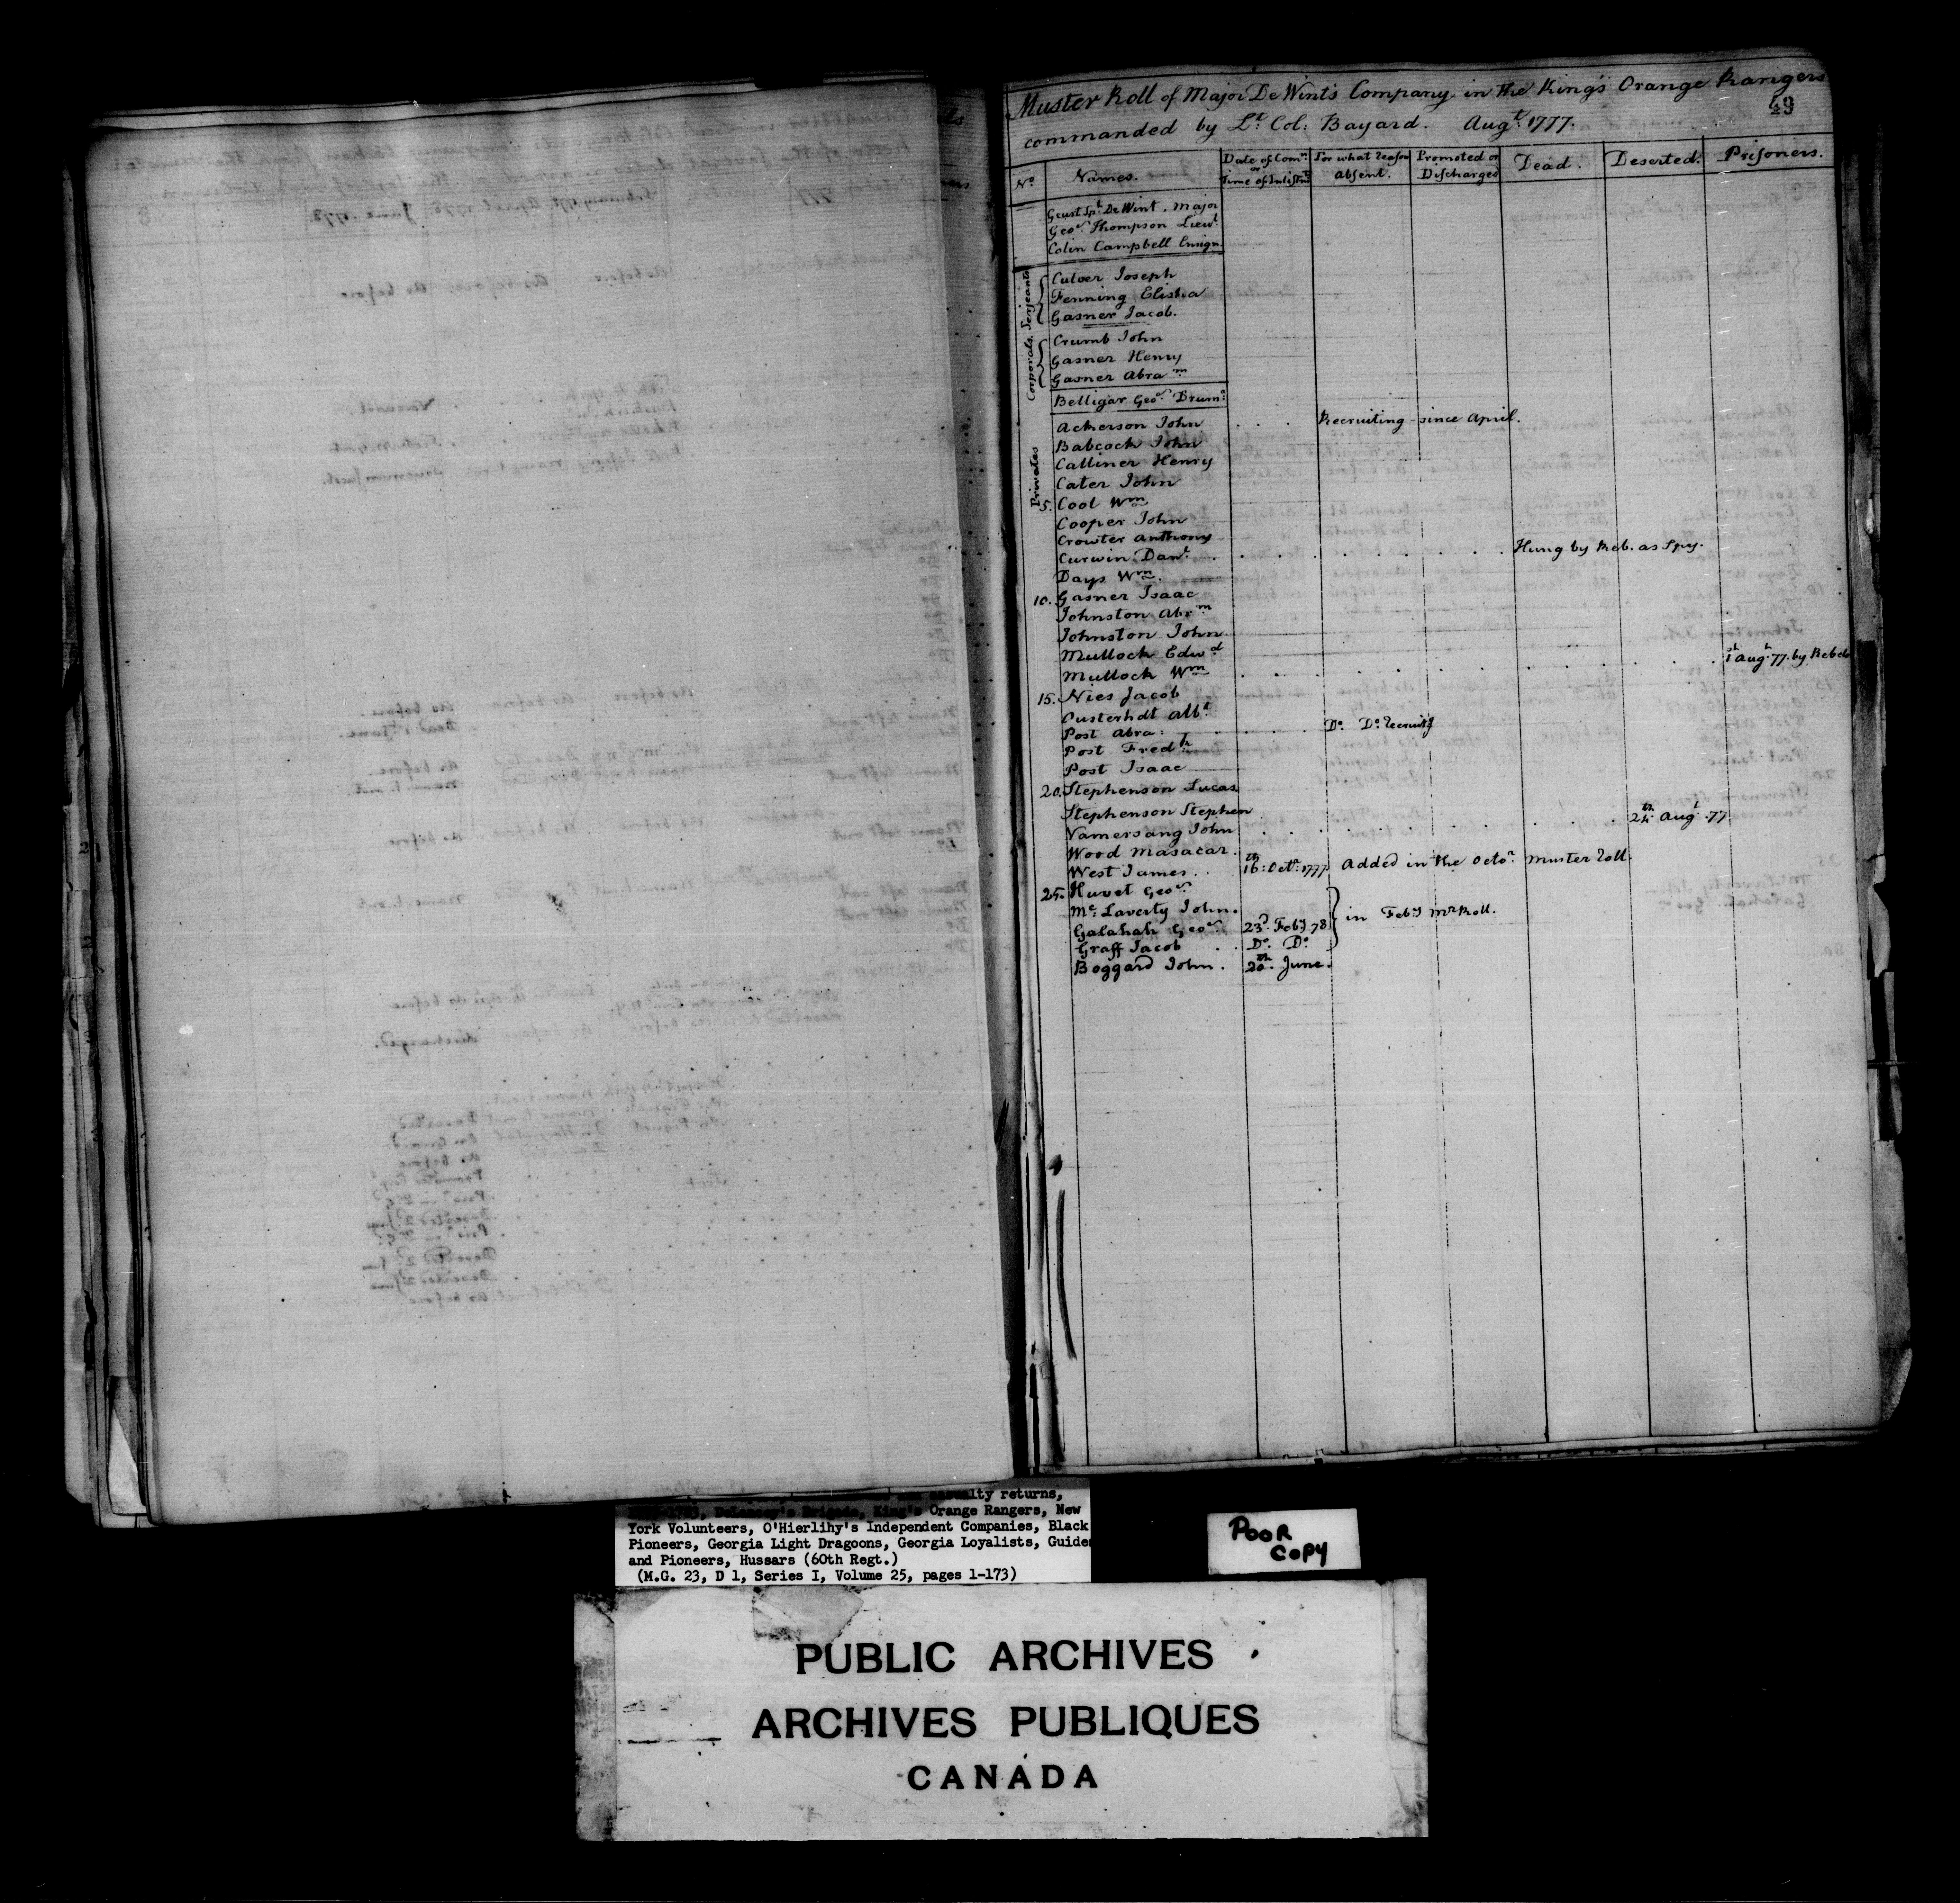 Muster Roll of Major De Wint's Company in the King's Orange Rangers
49
commanded by Lt. Col: Bayard. Augt. 1777.
No. Names. Date of Comn. or Time of Inlistmt. For what reason absent. Promoted or Discharged Dead. Deserted. Prisoners.
De Wint. Major
Geo. Thompson Lieut.
Colin Campbell Ensign.
Serjeants
Culver Joseph
Fenning Elisha
Gasner Jacob.
Corporals.
Crumb John
Gasner Henry
Gasner Abram
Belligar Geo. Drumr.
Privates
Ackerson John . . . Recruiting since April.
Babcock John
Calliner Henry
Cater John
5. Cool Wm
Cooper John
Crowter Anthony
Curwin Danl. . . . . . . . . . Hung by Reb. as Spy.
Days Wm.
10. Gasner Isaac
Johnston Abrm
Johnston John
Mullock Edwd
Mullock Wm . . . . . . . . . . . 1st Augt. 77. by Rebels
15. Nies Jacob
Ousterhdt Albt.
Post Abra: . . . . . Do. Do. recruitg
Post Fredk
Post Isaac
20. Stephenson Lucas
Stephenson Stephen
Vamersang John . . . . . . . . . . 24th Augt. 77
Wood Masacar.
West James . . 16th: Octr. 1777 Added in the Octor. muster roll.
25. Huvet Geo.
Mc Laverty John.
Galahah Geo. 23d. Feby 78 } in Feby Mr Roll.
Graff Jacob . . Do. Do.
Boggard John . 20th. June.
casualty returns,
DeLancey's Brigade, King's Orange Rangers, New
York Volunteers, O'Hierlihy's Independent Companies, Black
Pioneers, Georgia Light Dragoons, Georgia Loyalists, Guides
and Pioneers, Hussars (60th Regt.)
(M.G. 23, D 1, Series I, Volume 25, pages 1-173)
POOR
COPY
PUBLIC ARCHIVES
ARCHIVES PUBLIQUES
CANADA